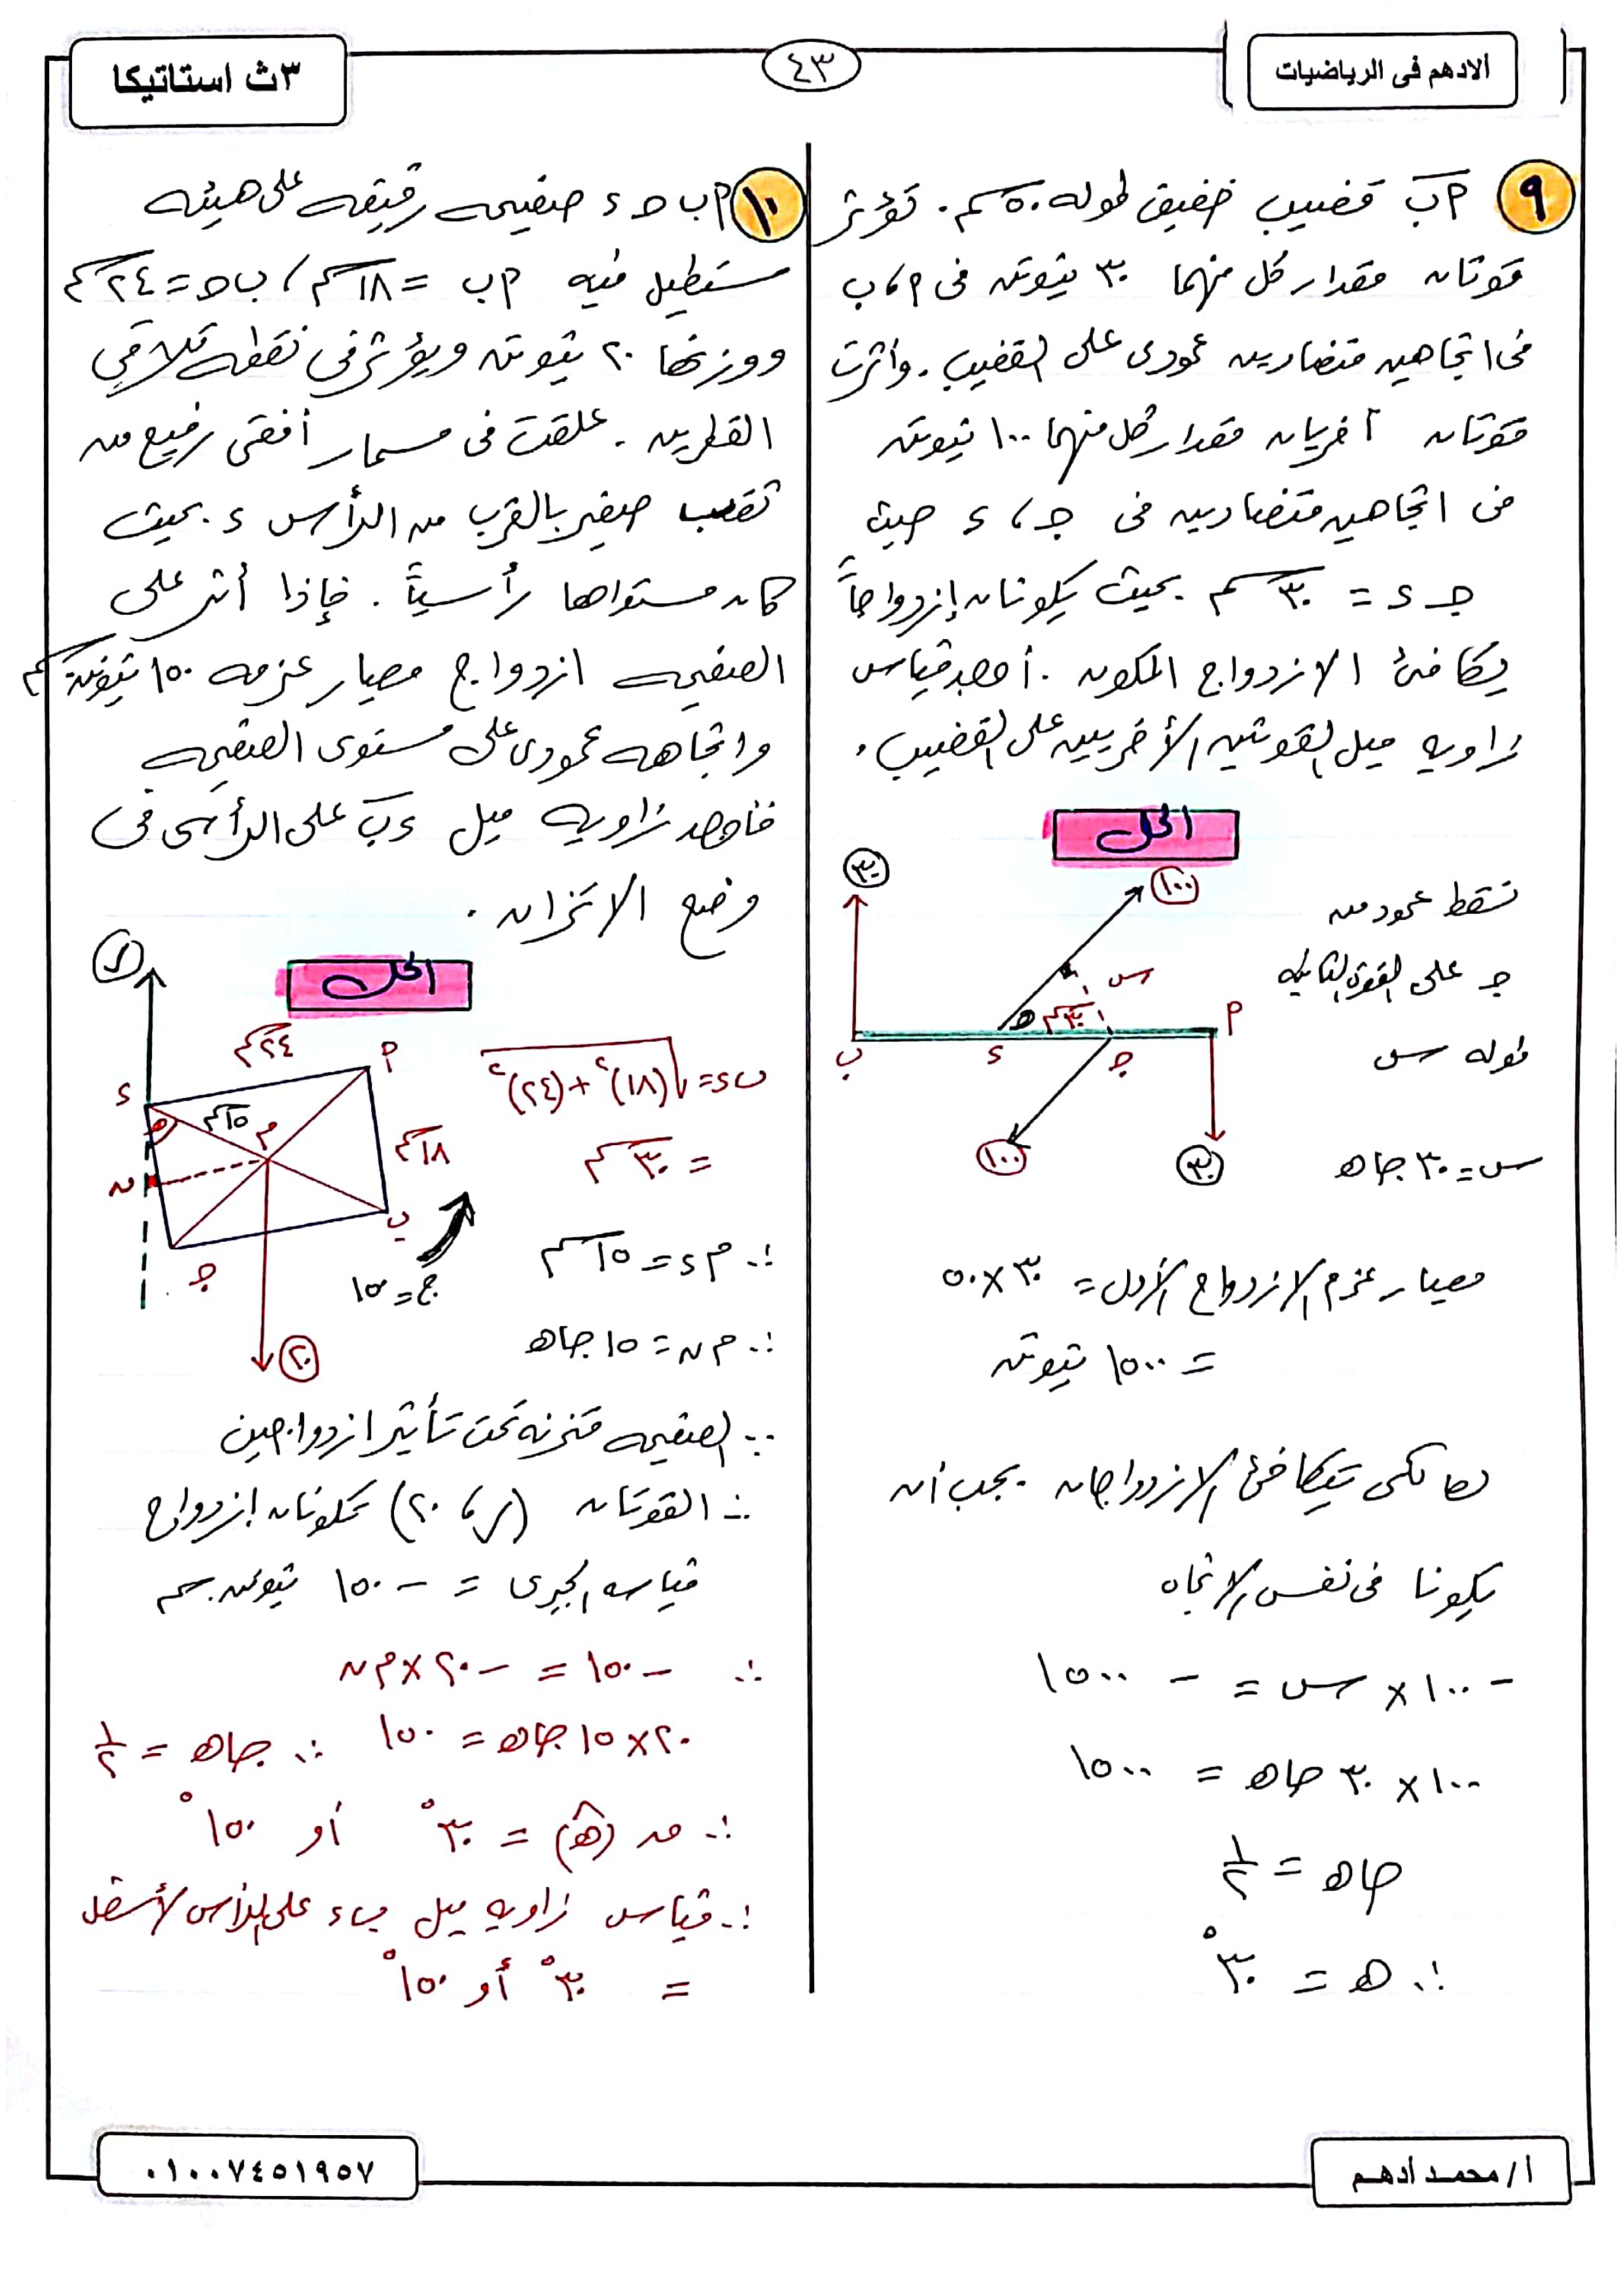 الادهم فى الرياضيات
٤٣
٣ث استاتيكا
٩
أب قضيب خفيف طوله ٥٠ سم . تؤثر
قوتان مقدار كل منهما ٣٠ نيوتن فى أ، ب
فى اتجاهين متضادين عمودى على القضيب . وأثرت
قوتان أخريان مقدار كل منهما ١٠٠ نيوتن
فى اتجاهين متضادين فى جـ ، ء حيث
جـ ء = ٣٠ سم بحيث يكونان إزدواجاً
يكافئ الازدواج المكون . أوجد قياس
زاوية ميل القوتين الأخريين على القضيب .
الحل
نسقط عمود من
جـ على القوة الثانية
طوله س
س = ٣٠ جا هـ
٣٠
١٠٠
س
هـ
٣٠ سم
أ
ب
ء
جـ
١٠٠
٣٠
معيار عزم الازدواج الأول = ٣٠ × ٥٠
= ١٥٠٠ نيوتن
لكى يتكافئ الازدواجان يجب أن
يكونا فى نفس الاتجاه
- ١٠٠ × س = - ١٥٠٠
١٠٠ × ٣٠ جا هـ = ١٥٠٠
جا هـ = ١/٢
∴ هـ = ٣٠°
١٠
أ ب جـ ء صفيحه رقيقه على هيئه
مستطيل فيه أ ب = ١٨ سم ، ب جـ = ٢٤ سم
ووزنها ٢٠ نيوتن ويؤثر فى نقطه تلاقى
القطرين . علقت فى مسمار أفقى رفيع من
ثقب صغير بالقرب من الرأس ء . بحيث
كان مستواها رأسياً . فإذا أثر على
الصفيحه ازدواج معيار عزمه ١٥٠ نيوتن سم
واتجاهه عمودى على مستوى الصفيحه
فاوجد زاويه ميل ء ب على الرأسى فى
وضع الاتزان .
الحل
ر
٢٤ سم
ء
أ
١٥ سم
هـ
م
١٨ سم
ن
ب
جـ
ج = ١٥٠
٢٠
ب ء = √(١٨)² + (٢٤)²
= ٣٠ سم
∴ م ء = ١٥ سم
∴ م ن = ١٥ جا هـ
∵ الصفيحه متزنه تحت تأثير ازدواجين
∴ القوتان (ر ، ٢٠) تكونان إزدواج
قياسه الجبرى = - ١٥٠ نيوتن . سم
∴ - ١٥٠ = - ٢٠ × م ن
٢٠ × ١٥ جا هـ = ١٥٠ ∴ جا هـ = ١/٢
∴ ق (هـ) = ٣٠° أو ١٥٠°
∴ قياس زاويه ميل ب ء على الرأس لأسفل
= ٣٠° أو ١٥٠°
أ/ محمد أدهم
٠١٠٠٧٤٥١٩٥٧